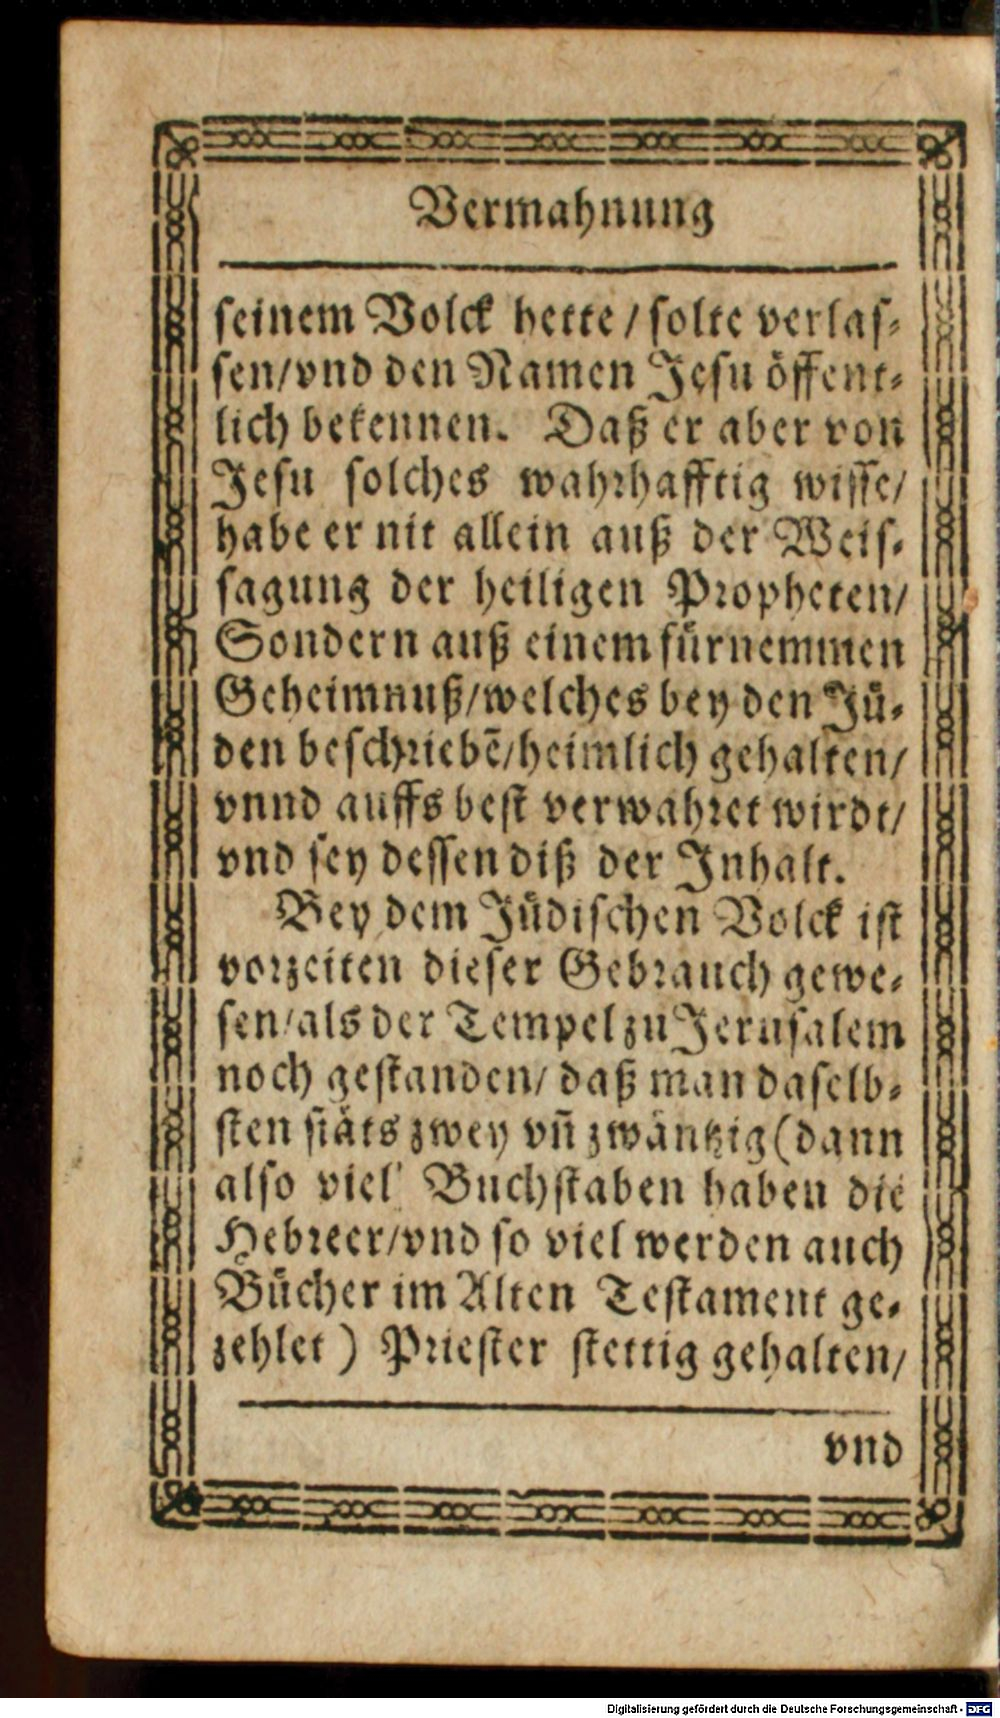 Vermahnung
seinem Volck hette / solte verlas⸗
sen/vnd den Namen Jesu öffent⸗
lich bekennen. Daß er aber von
Jesu solches wahrhafftig wisse/
habe er nit allein auß der Weis⸗
sagung der heiligen Propheten/
Sondern auß einem fürnemmen
Geheimnuß/welches bey den Jü⸗
den beschriebẽ/heimlich gehalten/
vnnd auffs best verwahret wirdt/
vnd sey dessen diß der Inhalt.
Bey dem Jüdischen Volck ist
vorzeiten dieser Gebrauch gewe⸗
sen/als der Tempel zu Jerusalem
noch gestanden/ daß man daselb⸗
sten stäts zwey vñ zwäntzig (dann
also viel Buchstaben haben die
Hebreer/vnd so viel werden auch
Bücher im Alten Testament ge⸗
zehlet ) Priester stettig gehalten/
vnd
Digitalisierung gefördert durch die Deutsche Forschungsgemeinschaft - DFG